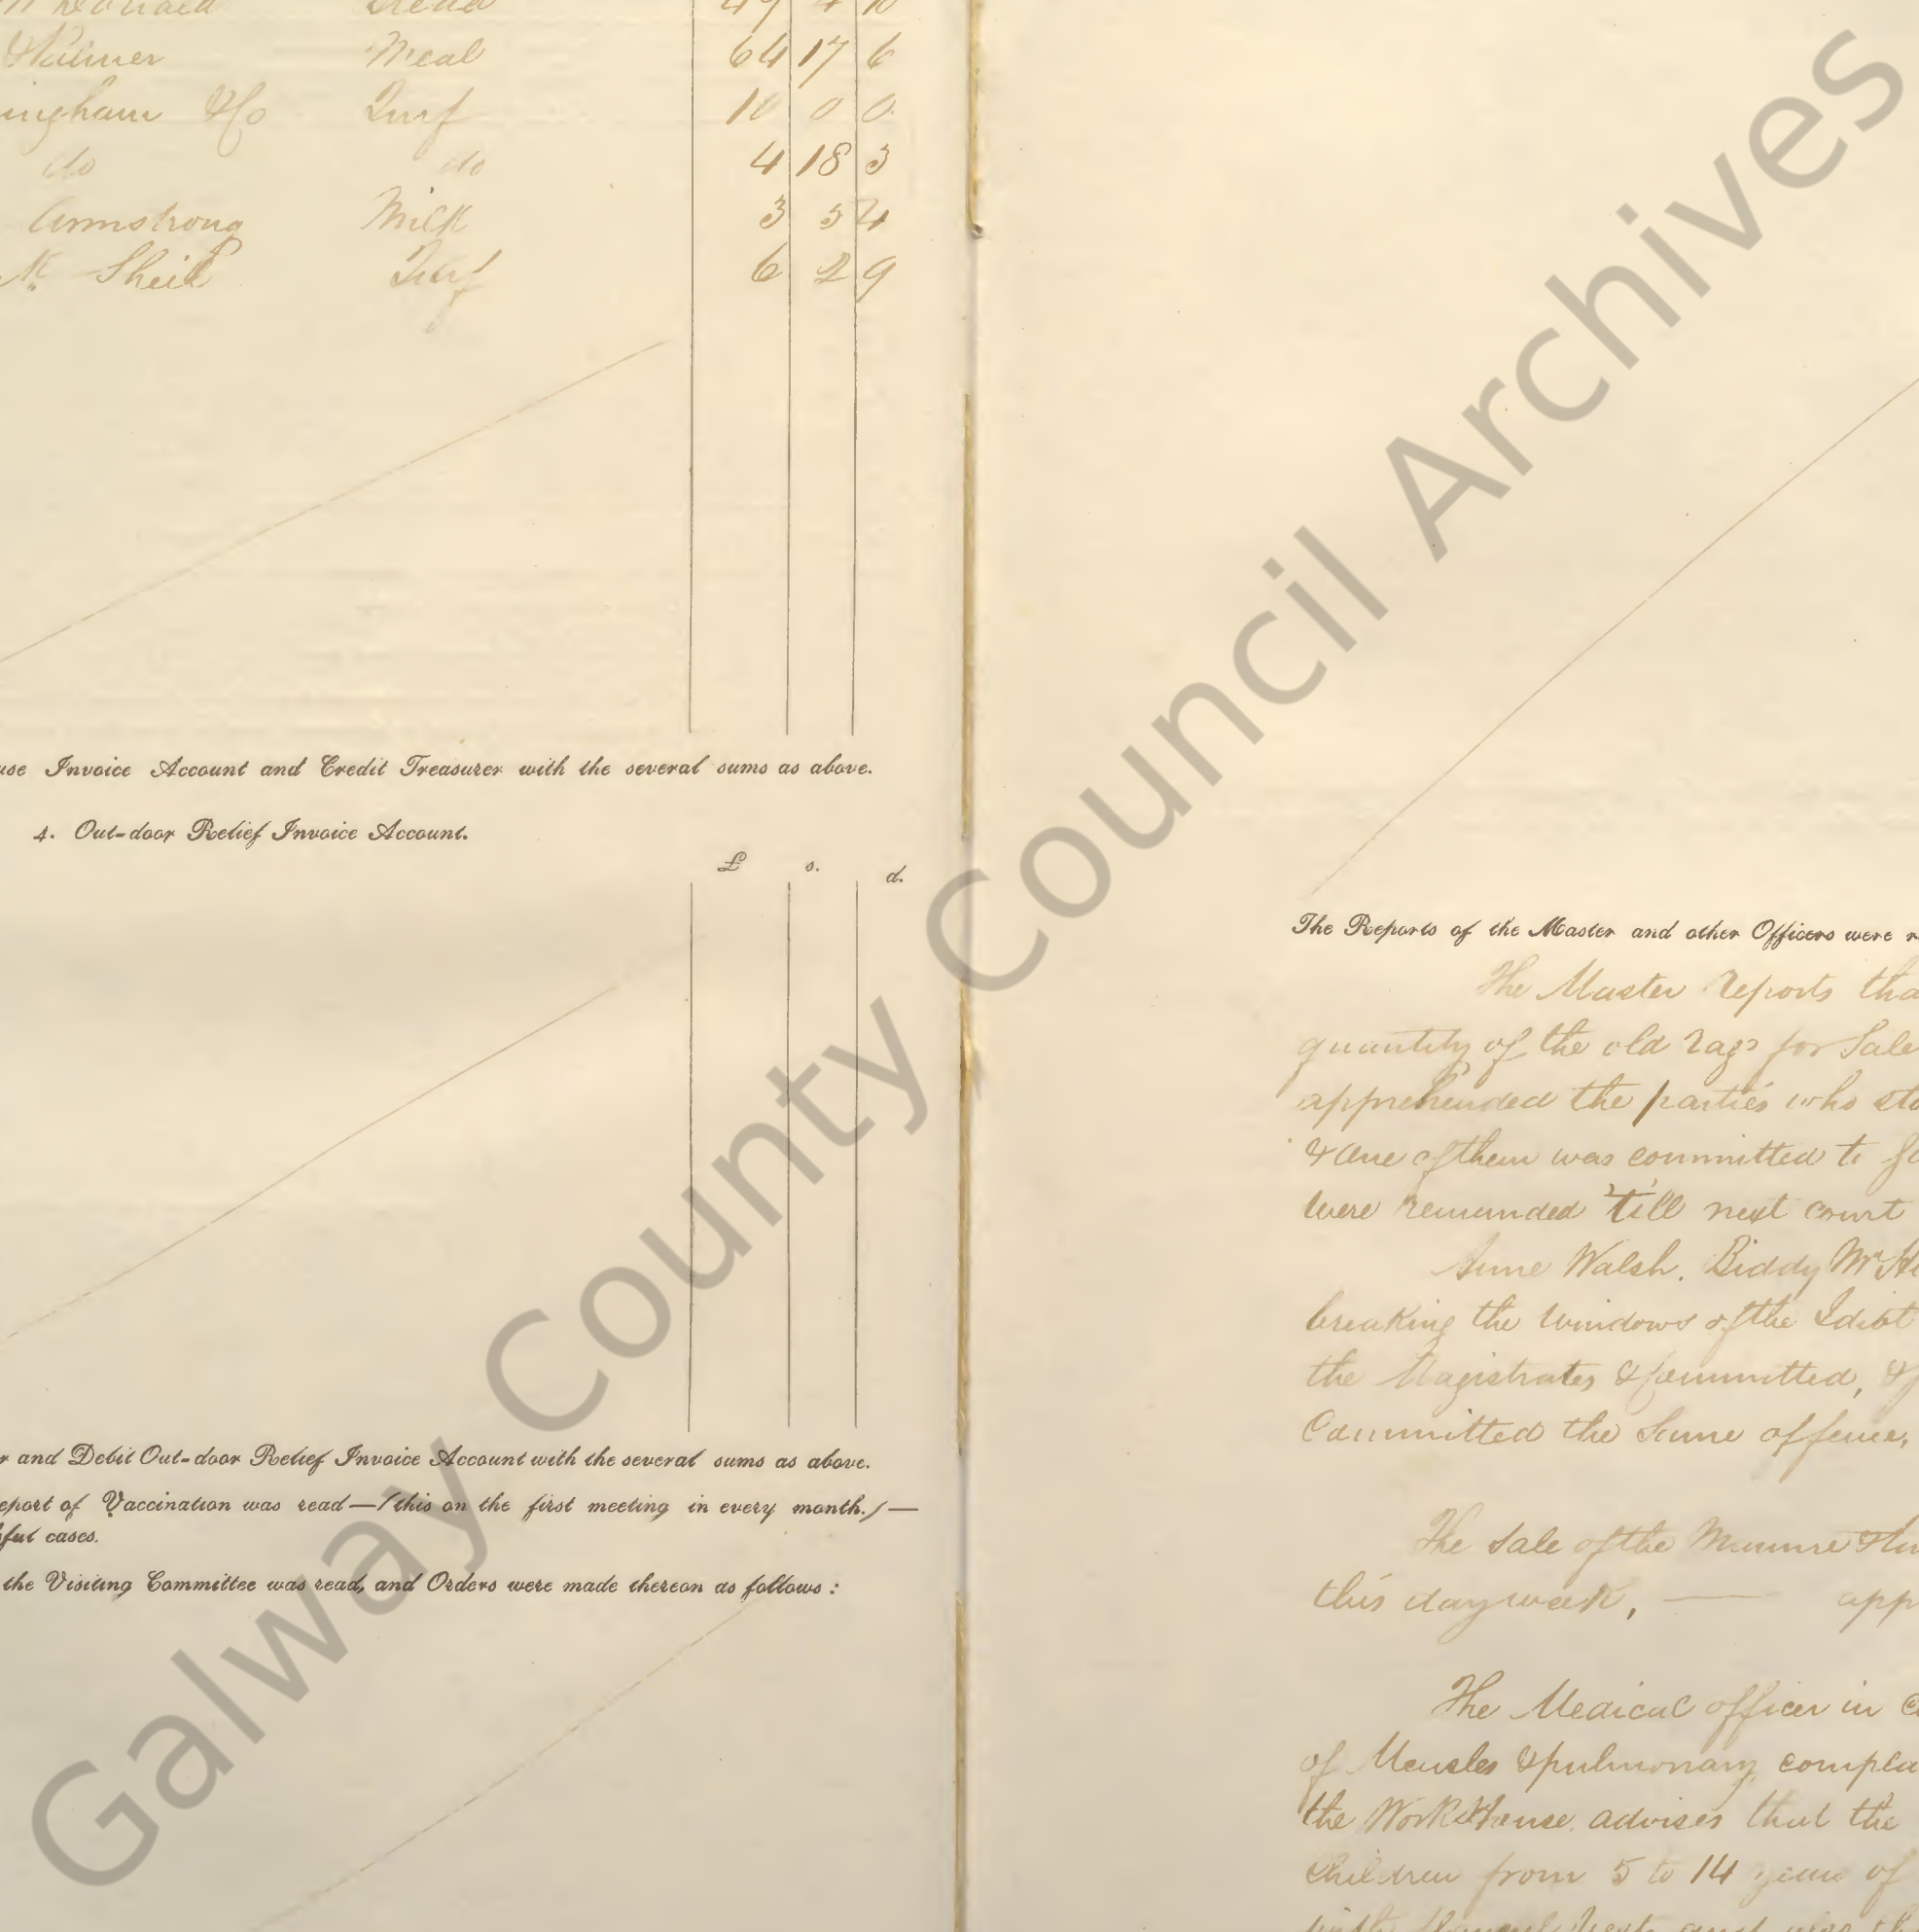 49 4 10
Palmer Meal 64 17 6
ingham &Co Turf 10 0 0
do do 4 18 3
Armstrong Milk 3 5 4
Sheil Turf 6 2 9
use Invoice Account and Credit Treasurer with the several sums as above.
4. Out-door Relief Invoice Account.
£ s. d.
r and Debit Out-door Relief Invoice Account with the several sums as above.
eport of Vaccination was read—(this on the first meeting in every month.)—
ful cases.
the Visiting Committee was read, and Orders were made thereon as follows:
The Reports of the Master and other Officers were r
The Master reports tha
quantity of the old rags for Sale
apprehended the parties who sto
& One of them was committed to
were remanded 'till next court
Anne Walsh. Biddy McHu
breaking the windows of the Idiot
the Magistrates & Committed, &
Committed the same offence,
The sale of the Manure
this day week, — app
The Medical officer in C
of Measles & pulmonary compla
the WorkHouse advises that the
Children from 5 to 14 years of
with flannel Vests and
Galway County Council Archives